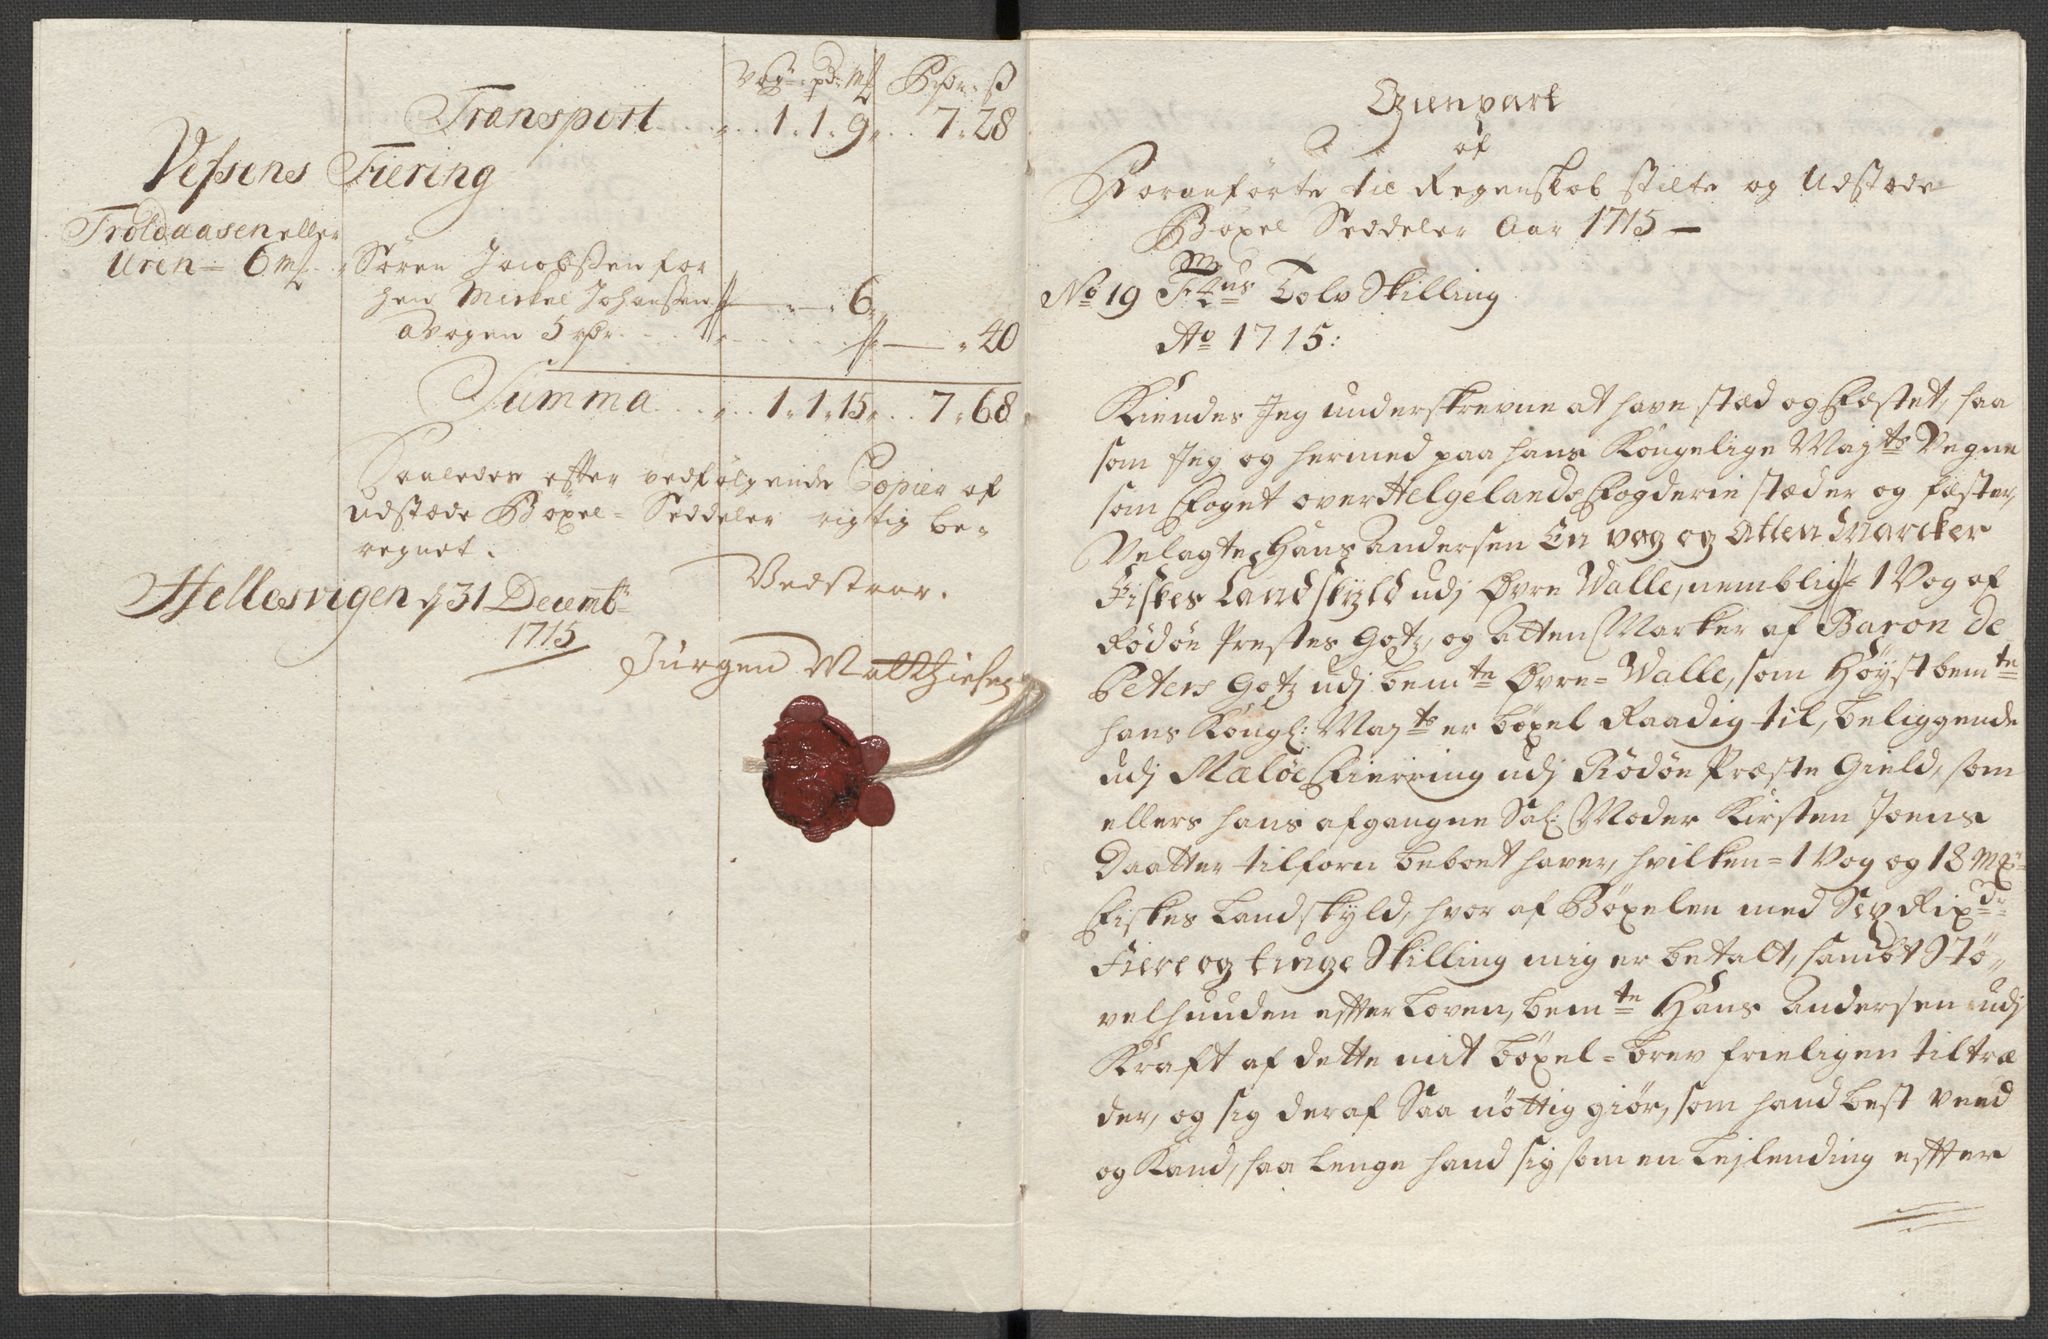 Vog: pd: mk Rdr: ß
Transport . . . 1. 1. 9. . . 7. 28
Vefsens Fiering
Troldaasen eller
Uren — 6 mk. Sören Jacobssen for
hen Mickel Johanssen — 6.
a Vogen 5 rdr. — 40
Summa . . . 1. 1. 15. . . 7. 68
Saaledes effter vedfølgende Copier af
udstæde Böxel-Seddeler rigtig be-
regnet.
Vedstaar.
Hellesvigen d 31 Decemb:
1715
Jürgen Matthiesen
Gienpart
af
Foranförte til Regenskab stilte og Udstæde
Böxel Seddeler Aar 1715 —
No 19 F:4tus Tolv Skilling
Ao 1715:
Kiendes Jeg underskrevne at have stæd og Fæstet, saa
som Jeg og hermed paa hans Kongelige Mayts Vegne
som Foget over Helgelands Fogderie stæder og fæster,
Velagte Hans Andersen En vog og Atten Marcker
Fiskes Landskyld udj Øvre Walle, nemblig 1 Vog af
Rödöe Prestes Gotz, og Atten Marker af Baron de
Peters Gotz udj bemte Øvre-Walle, som Höystbemte
hans Kongl: Mayts er böxel Raadig til, beliggende
udj Meløe Fierring udj Rödöe Præste Gield, som
ellers hans afgangne Sal: Moder Kirsten Joens
Daatter tilforn beboet haver, hvilken 1 Vog og 18 mk:
Fiskes Landskyld, hvor af Böxelen med Syv Rixdr
Fiere og tiuge Skilling mig er betalt, sambt Stö-
velhuuden effter Loven, bemte Hans Andersen udj
Kraft af dette mit böxel-brev frieligen tiltræ
der, og sig deraf saa nöttig giör, som hand best veed
og Kand, saa lenge hand sig som en Lejlending effter